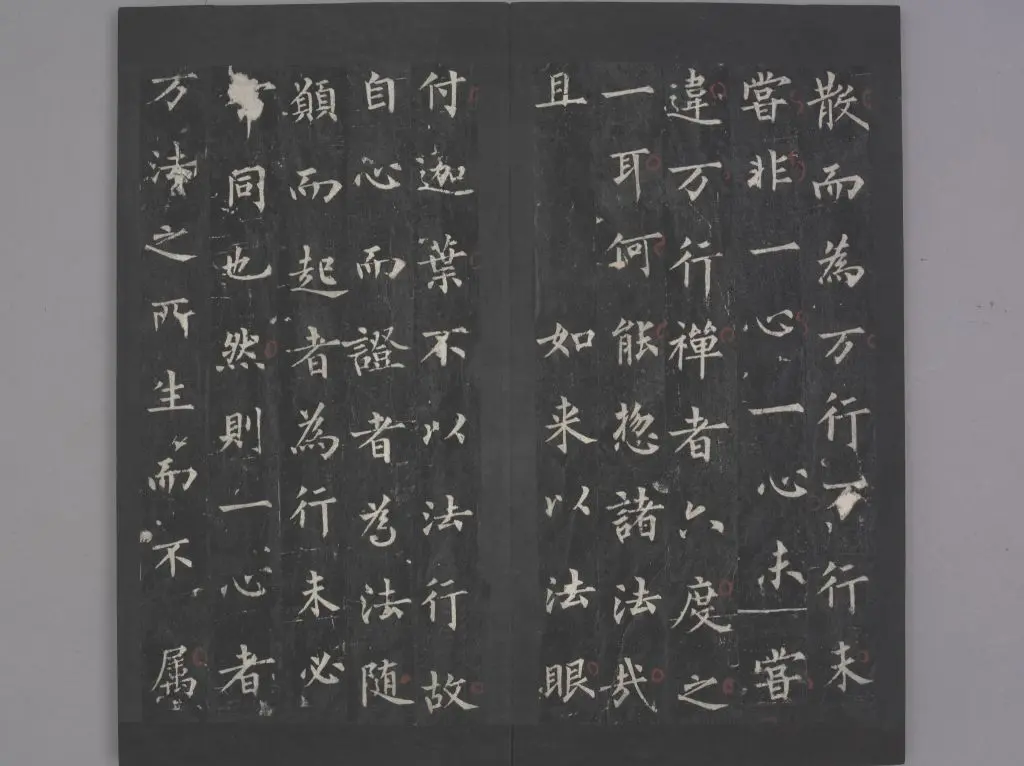 散而為万行万行未
嘗非一心一心未嘗
違万行禅者六度之
一耳何能惣諸法哉
且如来以法眼
付迦葉不以法行故
自心而證者為法随
願而起者為行未必
同也然則一心者
万法之所生而不属